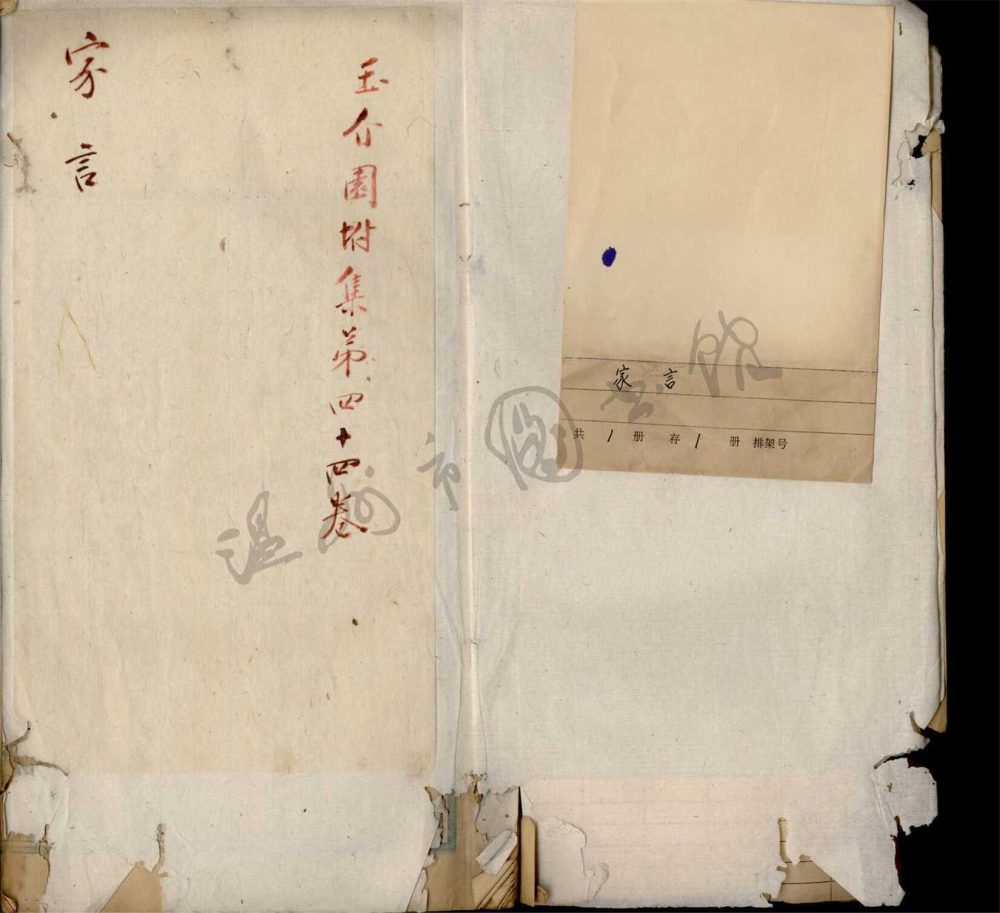 玉介園坿集第四十四卷
家言
家言
共 1 册 存 1 册 排架号
温州市图书館